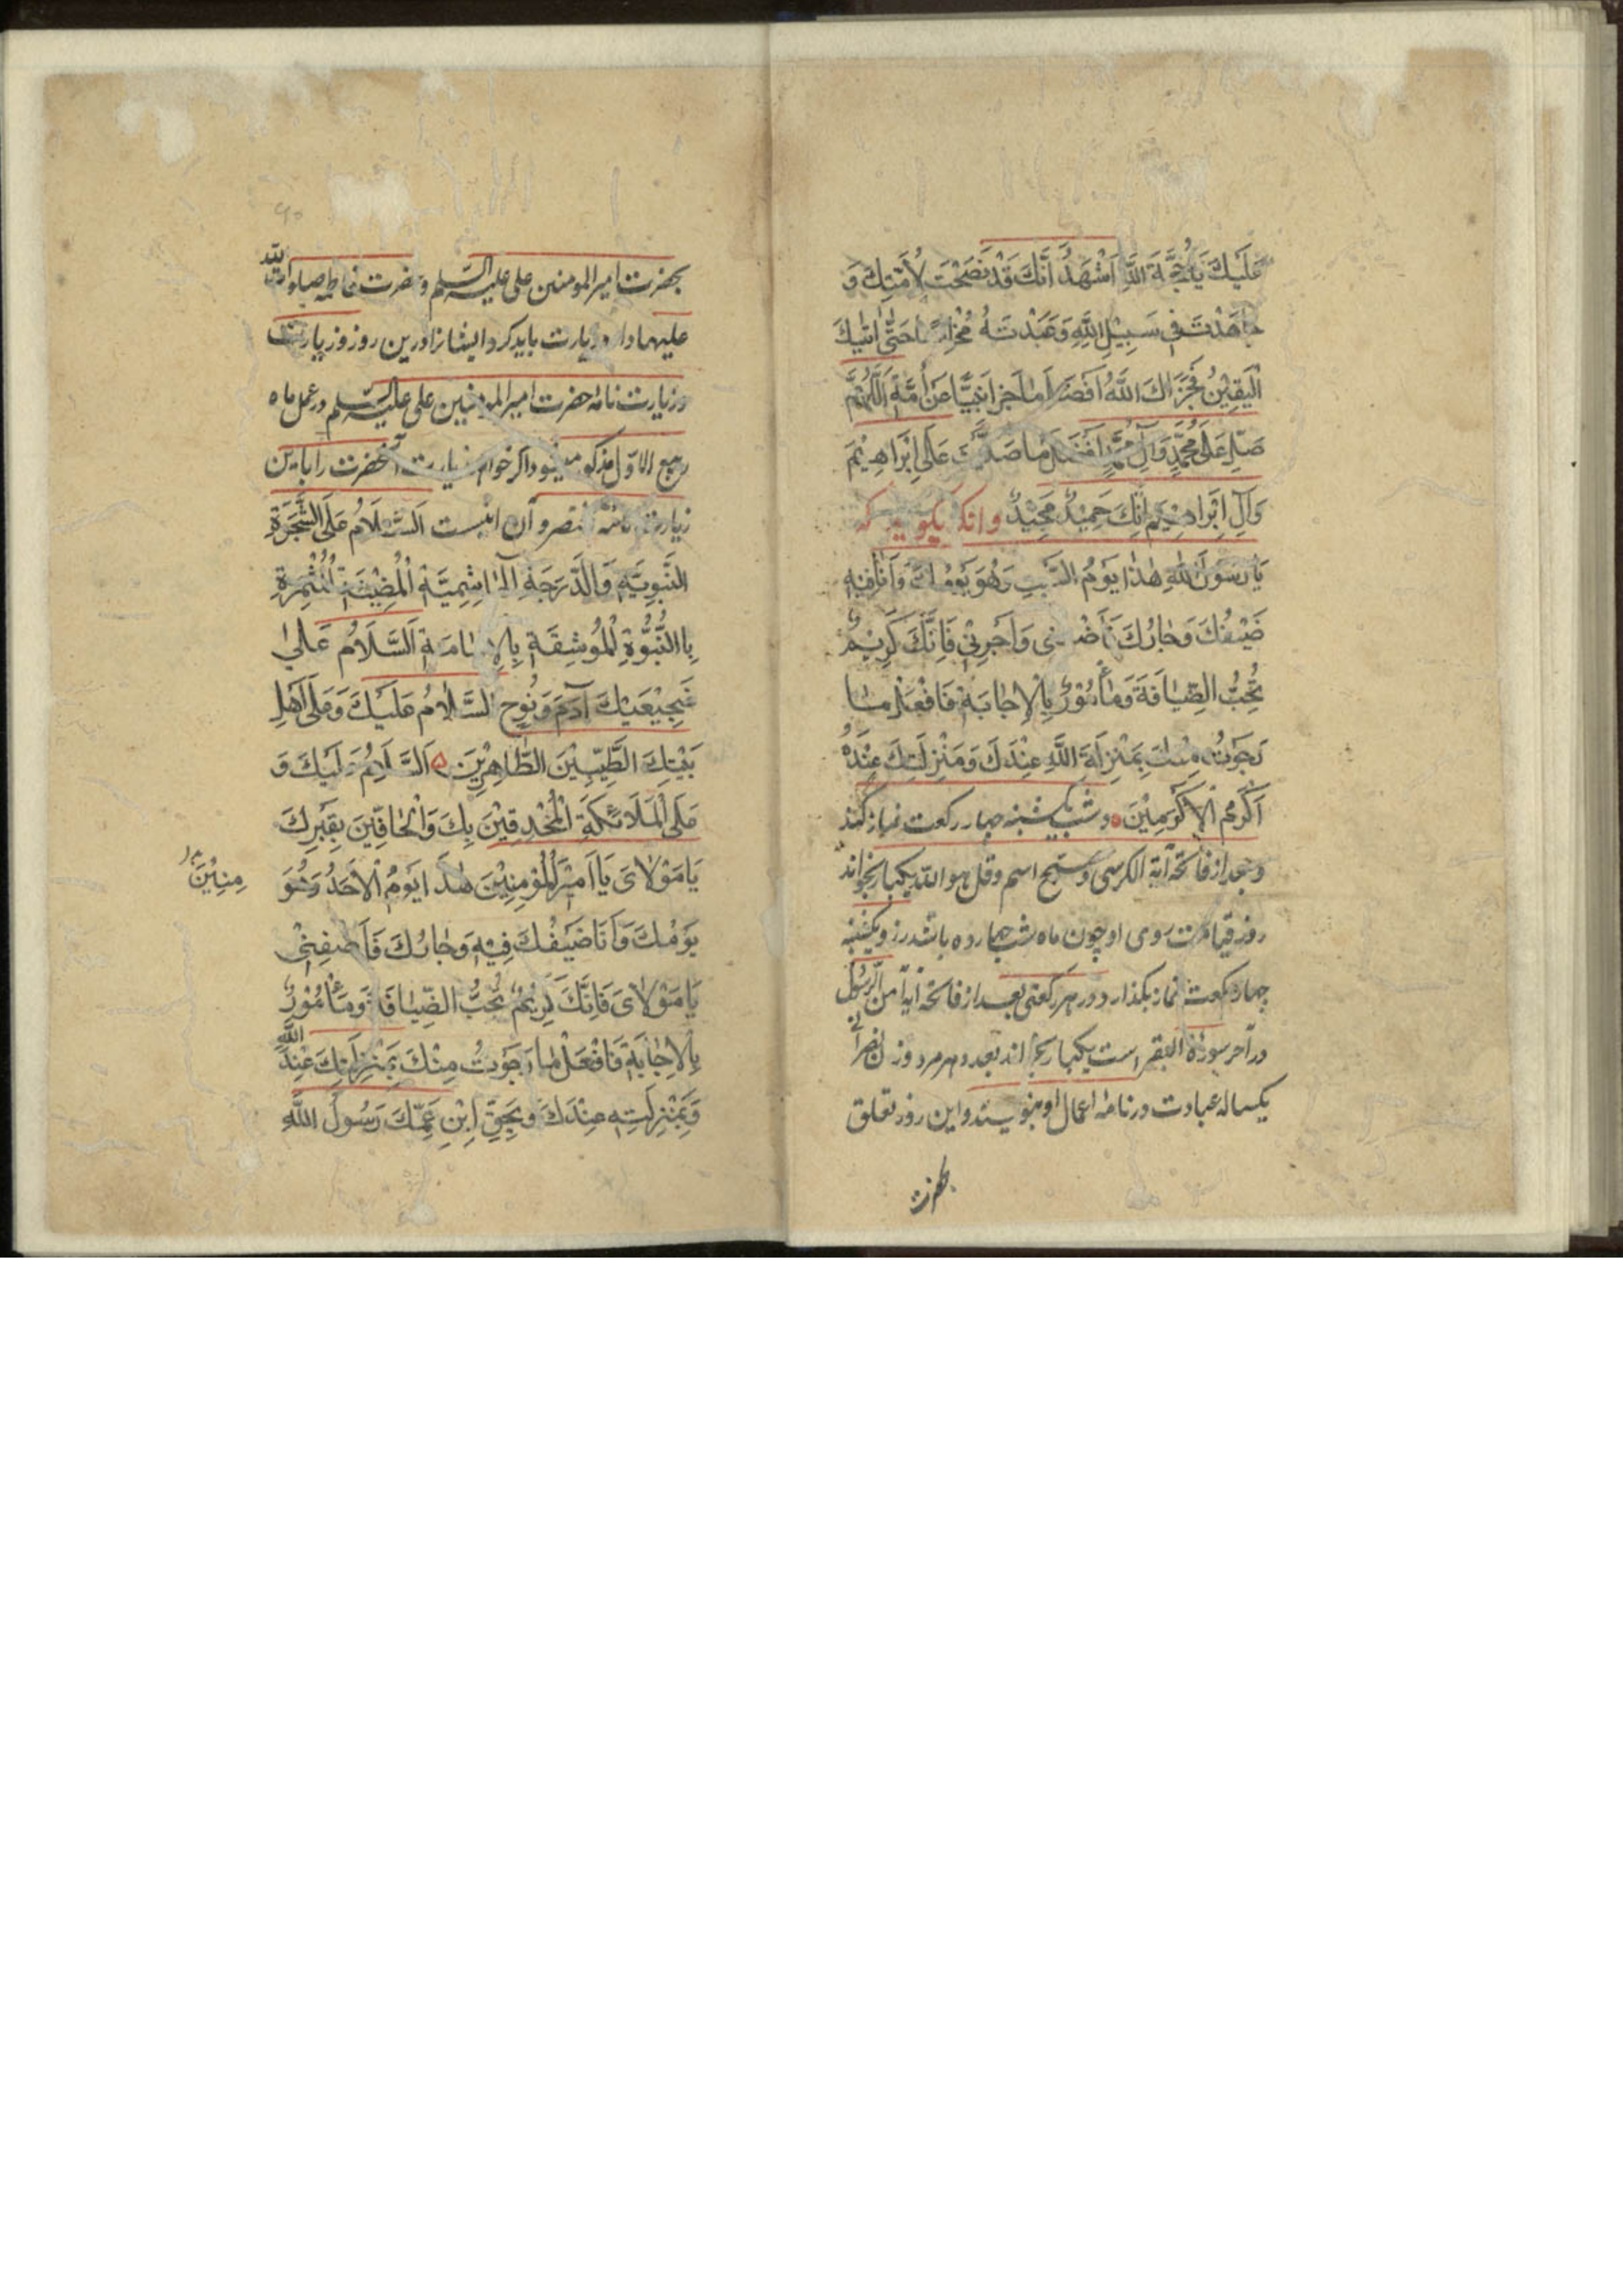 عَلَيْكَ يَا حُجَّةَ اللَّهِ اَشْهَدُ اَنَّكَ قَدْ نَصَحْتَ لِاُمَّتِكَ وَ
جَاهَدْتَ فِي سَبِيْلِ اللَّهِ وَعَبَدْتَهُ حَتّٰى اَتٰيكَ
الْيَقِيْنُ فَجَزَاكَ اللَّهُ اَفْضَلَ مَا جَزٰا نَبِيًّا عَنْ اُمَّتِهِ اَللّٰهُمَّ
صَلِّ عَلٰى مُحَمَّدٍ وَآلِ مُحَمَّدٍ اَفْضَلَ مَا صَلَّيْتَ عَلٰى اِبْرَاهِيْمَ
وَآلِ اِبْرَاهِيْمَ اِنَّكَ حَمِيْدٌ مَجِيْدٌ وانكه بكويد كه
يَا رَسُوْلَ اللّٰهِ هٰذَا يَوْمُ السَّبْتِ وَهُوَ يَوْمُكَ وَاَنَا فِيْهِ
ضَيْفُكَ وَجَارُكَ فَاَضِفْنِى وَاَجِرْنِيْ فَاِنَّكَ كَرِيْمٌ
تُحِبُّ الضِّيَافَةَ وَمَأْمُوْرٌ بِالْاِجَابَةِ فَافْعَلْ مَا
رَجَوْتُ مِنْكَ بِمَنْزِلَةِ اللَّهِ عِنْدَكَ وَمَنْزِلَتِكَ عِنْدَهُ
اَكْرَمَ الْاَكْرَمِيْنَ وشب يكشنبه چهار ركعت نماز كند
وبعد از فاتحه آية الكرسى وسبح اسم وقل هو الله يكبار بخواند
روز قيامت روى او چون ماه شب چهارده باشد در روز يكشنبه
چهار ركعت نماز بكذارد در هر ركعتى بعد از فاتحه آية آمن الرسول
در آخر سورة البقر است يكبار بخواند بعدد هر مرد وزن نصرانى
يكساله عبادت در نامه اعمال او بنويسند واين روز تعلق
بحضرت
بحضرت امير المومنين على عليه السلم وحضرت فاطمه صلوات الله
عليهما دارد زيارت بايد كرد ايشانرا درين روز وزيارت
وزيارت نامه حضرت امير المومنين على عليه السلم در عمل ماه
ربيع الاول مذكور ميشود اكر خواهد زيارت آنحضرت را باين
زيارت نامه مختصر وآن اينست اَلسَّلَامُ عَلَى الشَّجَرَةِ
النَّبَوِيَّةِ وَالدَّرَجَةِ الْهَاشِمِيَّةِ الْمُضِيْئَةِ الْمُثْمِرَةِ
بِاالنُّبُوَّةِ الْمُوْنِقَةِ بِالْاِمَامَةِ اَلسَّلَامُ عَلٰى
ضَجِيْعَيْكَ آدَمَ وَنُوْحٍ السَّلَامُ عَلَيْكَ وَعَلٰى اَهْلِ
بَيْتِكَ الطَّيِّبِيْنَ الطَّاهِرِيْنَ اَلسَّلَامُ عَلَيْكَ وَ
عَلَى الْمَلَائِكَةِ الْمُحْدِقِيْنَ بِكَ وَالْحَافِّيْنَ بِقَبْرِكَ
يَا مَوْلَاىَ يَا اَمِيْرَ الْمُؤْمِنِيْنَ هٰذَا يَوْمُ الْاَحَدُ وَهُوَ
مِنِيْنَ
يَوْمُكَ وَاَنَا ضَيْفُكَ فِيْهِ وَجَارُكَ فَاَضِفْنِيْ
يَا مَوْلَاىَ فَاِنَّكَ كَرِيْمٌ تُحِبُّ الضِّيَافَةَ وَمَأْمُوْرٌ
بِالْاِجَابَةِ فَافْعَلْ مَا رَجَوْتُ مِنْكَ بِمَنْزِلَتِكَ عِنْدَ اللَّهِ
وَبِمَنْزِلَتِهِ عِنْدَكَ وبِحَقِّ اِبْنِ عَمِّكَ رَسُولُ اللَّهِ